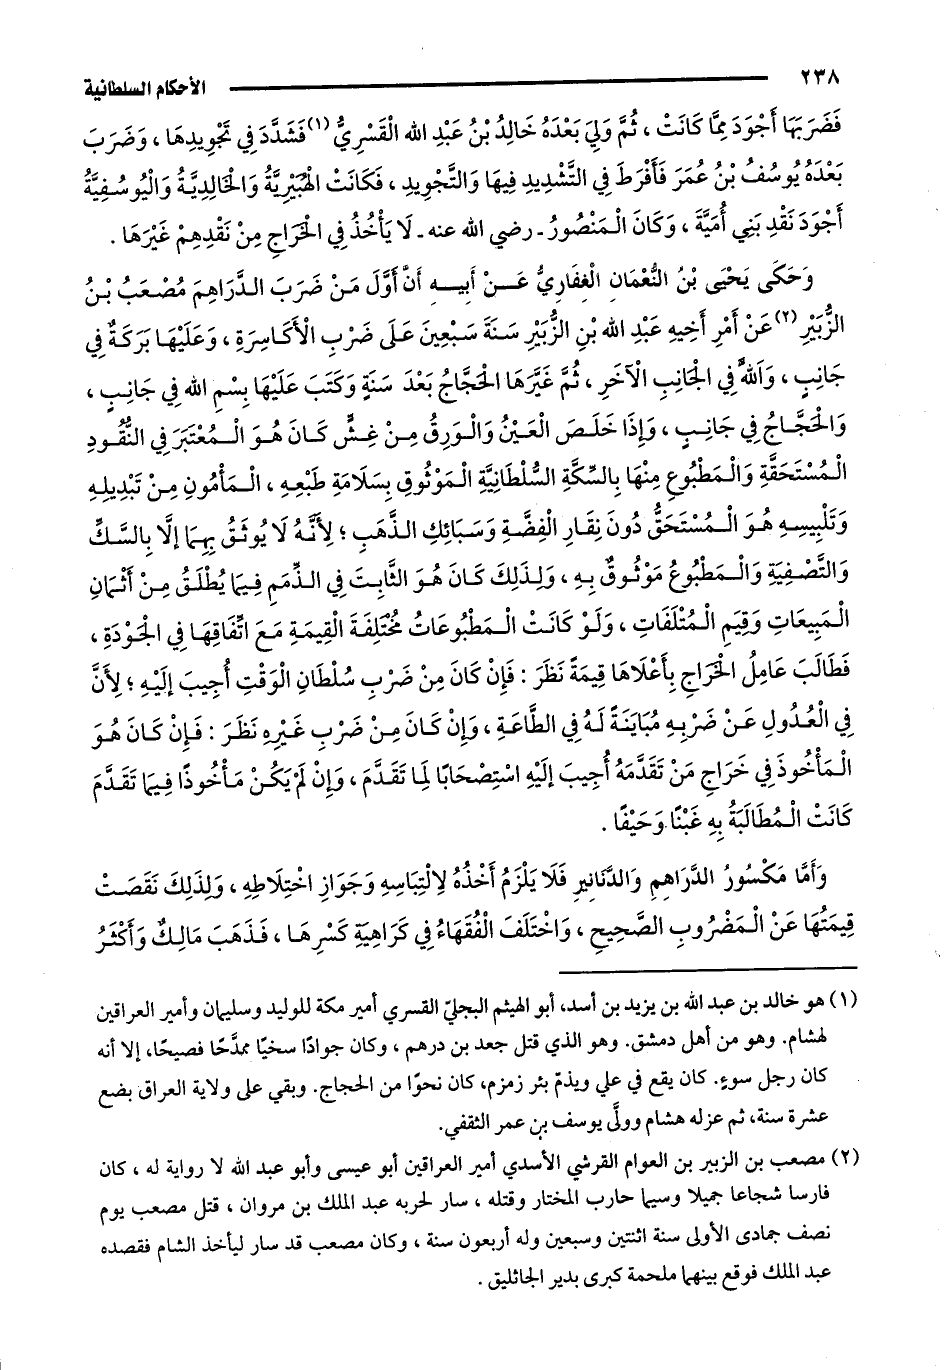 ٢٣٨ الأحكام السلطانية
فَضَرَبَهَا أَجْوَدَ مِمَّا كَانَتْ ، ثُمَّ وَلِيَ بَعْدَهُ خَالِدُ بْنُ عَبْدِ الله الْقَسْرِيُّ (١) فَشَدَّدَ فِي تَجْوِيدِهَا ، وَضَرَبَ
بَعْدَهُ يُوسُفُ بْنُ عُمَرَ فَأَفْرَطَ فِي التَّشْدِيدِ فِيهَا وَالتَّجْوِيدِ ، فَكَانَتْ الْهُبَيْرِيَّةُ وَالْخَالِدِيَّةُ وَالْيُوسُفِيَّةُ
أَجْوَدَ نَقْدِ بَنِي أُمَيَّةَ ، وَكَانَ الْمَنْصُورُ ـ رضي الله عنه ـ لَا يَأْخُذُ فِي الْخَرَاجِ مِنْ نَقْدِهِمْ غَيْرَهَا .
وَحَكَى يَحْيَى بْنُ النُّعْمَانِ الْغِفَارِيُّ عَنْ أَبِيهِ أَنَّ أَوَّلَ مَنْ ضَرَبَ الدَّرَاهِمَ مُصْعَبُ بْنُ
الزُّبَيْرِ (٢) عَنْ أَمْرِ أَخِيهِ عَبْدِ الله بْنِ الزُّبَيْرِ سَنَةَ سَبْعِينَ عَلَى ضَرْبِ الْأَكَاسِرَةِ ، وَعَلَيْهَا بَرَكَةٌ فِي
جَانِبٍ ، وَاللهُ فِي الْجَانِبِ الْآخَرِ ، ثُمَّ غَيَّرَهَا الْحَجَّاجُ بَعْدَ سَنَةٍ وَكَتَبَ عَلَيْهَا بِسْمِ الله فِي جَانِبٍ ،
وَالْحَجَّاجُ فِي جَانِبٍ ، وَإِذَا خَلَصَ الْعَيْنُ وَالْوَرِقُ مِنْ غِشٍّ كَانَ هُوَ الْمُعْتَبَرَ فِي النُّقُودِ
الْمُسْتَحَقَّةِ وَالْمَطْبُوعِ مِنْهَا بِالسِّكَّةِ السُّلْطَانِيَّةِ الْمَوْثُوقِ بِسَلَامَةِ طَبْعِهِ ، الْمَأْمُونِ مِنْ تَبْدِيلِهِ
وَتَلْبِيسِهِ هُوَ الْمُسْتَحَقُّ دُونَ نِقَارِ الْفِضَّةِ وَسَبَائِكِ الذَّهَبِ ؛ لِأَنَّهُ لَا يُوثَقُ بِهِمَا إلَّا بِالسَّكِّ
وَالتَّصْفِيَةِ وَالْمَطْبُوعُ مَوْثُوقٌ بِهِ ، وَلِذَلِكَ كَانَ هُوَ الثَّابِتَ فِي الذِّمَمِ فِيمَا يُطْلَقُ مِنْ أَثْمَانِ
الْمَبِيعَاتِ وَقِيَمِ الْمُتْلَفَاتِ ، وَلَوْ كَانَتْ الْمَطْبُوعَاتُ مُخْتَلِفَةَ الْقِيمَةِ مَعَ اتِّفَاقِهَا فِي الْجَوْدَةِ ،
فَطَالَبَ عَامِلُ الْخَرَاجِ بِأَعْلَاهَا قِيمَةً نَظَرَ : فَإِنْ كَانَ مِنْ ضَرْبِ سُلْطَانِ الْوَقْتِ أُجِيبَ إلَيْهِ ؛ لِأَنَّ
فِي الْعُدُولِ عَنْ ضَرْبِهِ مُبَايَنَةً لَهُ فِي الطَّاعَةِ ، وَإِنْ كَانَ مِنْ ضَرْبِ غَيْرِهِ نَظَرَ : فَإِنْ كَانَ هُوَ
الْمَأْخُوذَ فِي خَرَاجِ مَنْ تَقَدَّمَهُ أُجِيبَ إلَيْهِ اسْتِصْحَابًا لِمَا تَقَدَّمَ ، وَإِنْ لَمْ يَكُنْ مَأْخُوذًا فِيمَا تَقَدَّمَ
كَانَتْ الْمُطَالَبَةُ بِهِ غَبْنًا وَحَيْفًا .
وَأَمَّا مَكْسُورُ الدَّرَاهِمِ وَالدَّنَانِيرِ فَلَا يَلْزَمُ أَخْذُهُ لِالْتِبَاسِهِ وَجَوَازِ اخْتِلَاطِهِ ، وَلِذَلِكَ نَقَصَتْ
قِيمَتُهَا عَنْ الْمَضْرُوبِ الصَّحِيحِ ، وَاخْتَلَفَ الْفُقَهَاءُ فِي كَرَاهِيَةِ كَسْرِهَا ، فَذَهَبَ مَالِكٌ وَأَكْثَرُ
(١) هو خالد بن عبد الله بن يزيد بن أسد، أبو الهيثم البجليّ القسري أمير مكة للوليد وسليمان وأمير العراقين
لهشام. وهو من أهل دمشق. وهو الذي قتل جعد بن درهم ، وكان جوادًا سخيًا ممدَّحًا فصيحًا، إلا أنه
كان رجل سوءٍ. كان يقع في علي ويذمّ بئر زمزم، كان نحوًا من الحجاج. وبقي على ولاية العراق بضع
عشرة سنة، ثم عزله هشام وولَّى يوسف بن عمر الثقفي.
(٢) مصعب بن الزبير بن العوام القرشي الأسدي أمير العراقين أبو عيسى وأبو عبد الله لا رواية له ، كان
فارسا شجاعا جميلا وسيما حارب المختار وقتله ، سار لحربه عبد الملك بن مروان ، قتل مصعب يوم
نصف جمادى الأولى سنة اثنتين وسبعين وله أربعون سنة ، وكان مصعب قد سار ليأخذ الشام فقصده
عبد الملك فوقع بينهما ملحمة كبرى بدير الجاثليق .